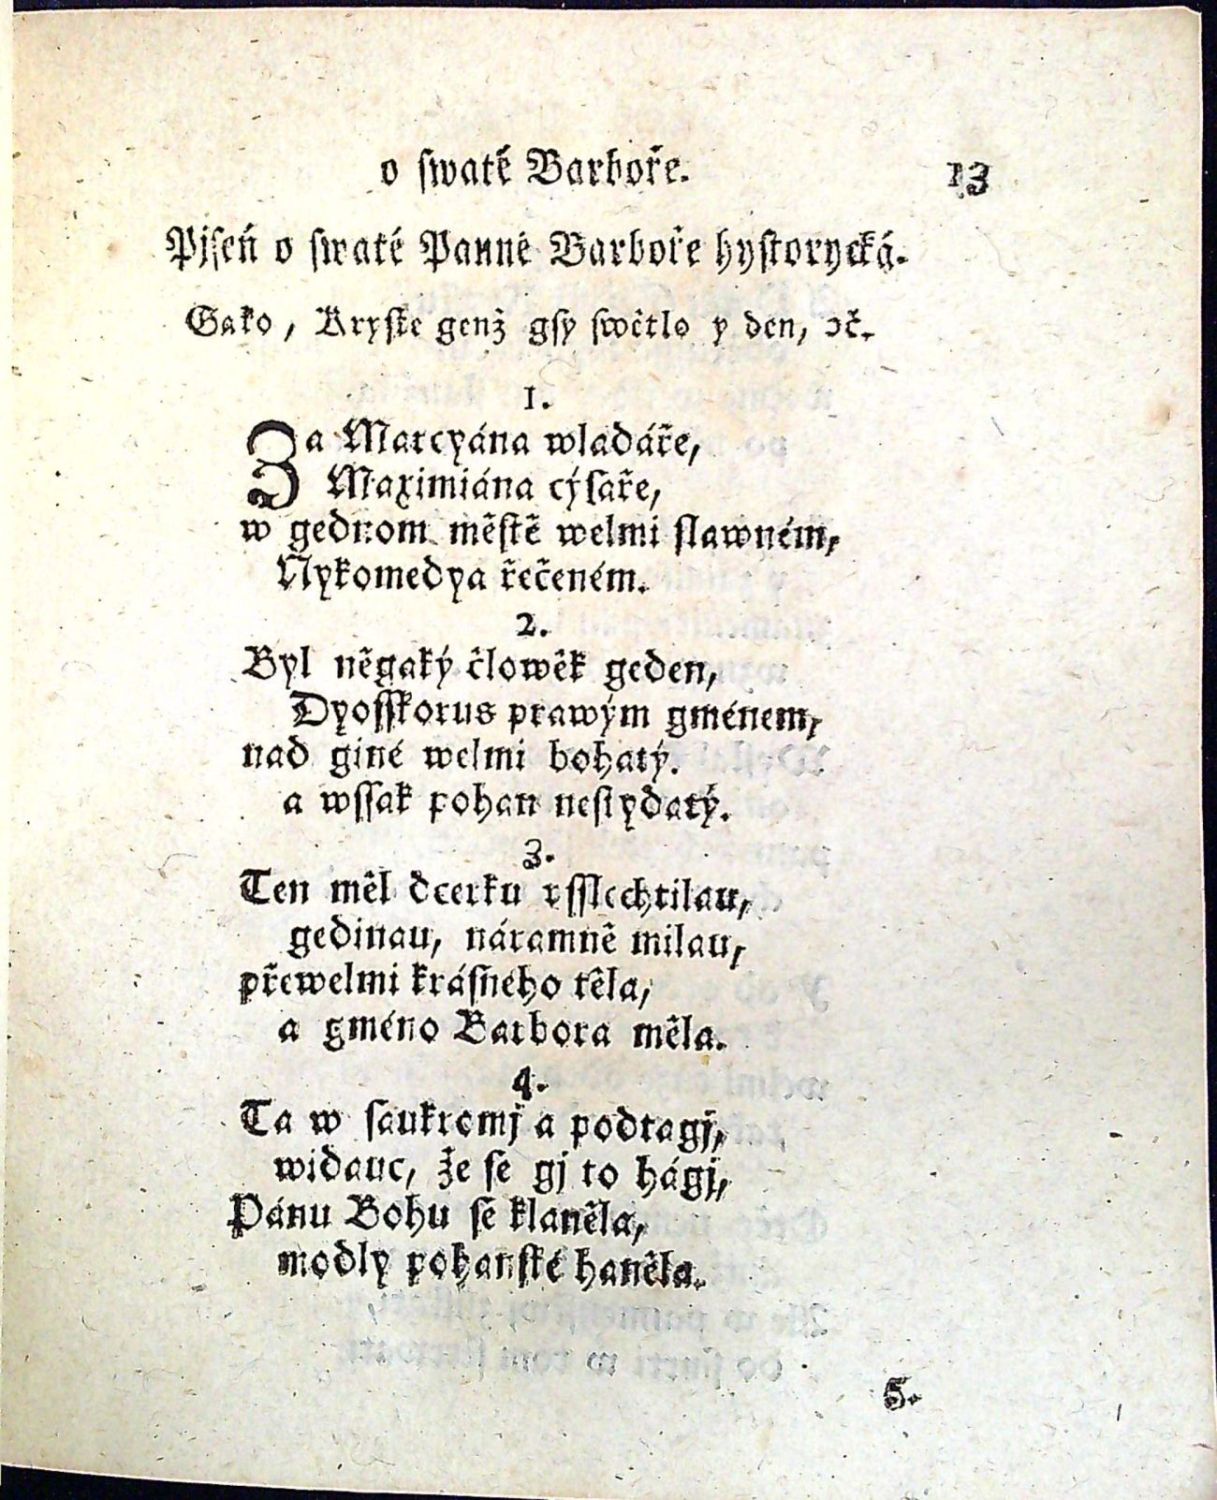 o ſwaté Barboře.
13
Pjſeń o ſwaté Panně Barboře hyſtorycká.
Gako, Kryſte genž gſy ſwětlo y den, ꝛč.
1.
Za Marcyána wladáře,
Maximiána cýſaře,
w gednom měſtě welmi ſlawném,
Nykomedya řečeném.
2.
Byl něgaký člowěk geden,
Dyoſſkorus prawým gménem,
nad giné welmi bohatý.
a wſſak pohan neſtydatý.
3.
Ten měl dcerku vſſlechtilau,
gedinau, náramně milau,
přewelmi kráſného těla,
a gméno Barbora měla.
4.
Ta w ſaukromj a podtagj,
widauc, že ſe gj to hágj,
Pánu Bohu ſe klaněla,
modly pohanſké haněla.
5.